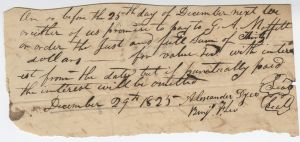 On or before the 25th day of December next we
or either of us promise to pay to G. A. Moffett
or order the just and full Sum of Thirty
dollars for value recd with inter
est from the date but if punctually paid
the interest will be omitted
December 29th 1825 Alexander (Seal)
Benj. (Seal)